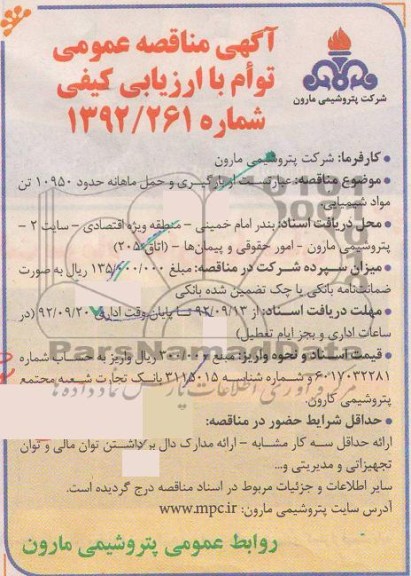 آگهی مناقصه عمومی
توأم با ارزیابی کیفی
شماره ۱۳۹۲/۲۶۱
شرکت پتروشیمی مارون
• کارفرما: شرکت پتروشیمی مارون
• موضوع مناقصه: عبارتست از بارگیری و حمل ماهانه حدود ۱۰۹۵۰ تن
مواد شیمیایی.
• محل دریافت اسناد: بندر امام خمینی - منطقه ویژه اقتصادی - سایت ۲ -
پتروشیمی مارون - امور حقوقی و پیمان‌ها - (اتاق ۲۰۵)
• میزان سپرده شرکت در مناقصه: مبلغ ۱۳۵/۶۰۰/۰۰۰ ریال به صورت
ضمانت‌نامه بانکی یا چک تضمین شده بانکی
• مهلت دریافت اسناد: از ۹۲/۰۹/۱۳ تا پایان وقت اداری ۹۲/۰۹/۲۰ (در
ساعات اداری و بجز ایام تعطیل)
• قیمت اسناد و نحوه واریز: مبلغ ۳۰۰/۰۰۰ ریال واریز به حساب شماره
۶۰۱۷۰۳۲۲۸۱ و شماره شناسه ۳۱۱۵۰۱۵ بانک تجارت شعبه مجتمع
پتروشیمی کارون.
• حداقل شرایط حضور در مناقصه:
ارائه حداقل سه کار مشابه - ارائه مدارک دال بر داشتن توان مالی و توان
تجهیزاتی و مدیریتی و...
سایر اطلاعات و جزئیات مربوط در اسناد مناقصه درج گردیده است.
آدرس سایت پتروشیمی مارون: www.mpc.ir
روابط عمومی پتروشیمی مارون
ParsNamadData
مرکز فرآوری اطلاعات پارس نماد داده ها